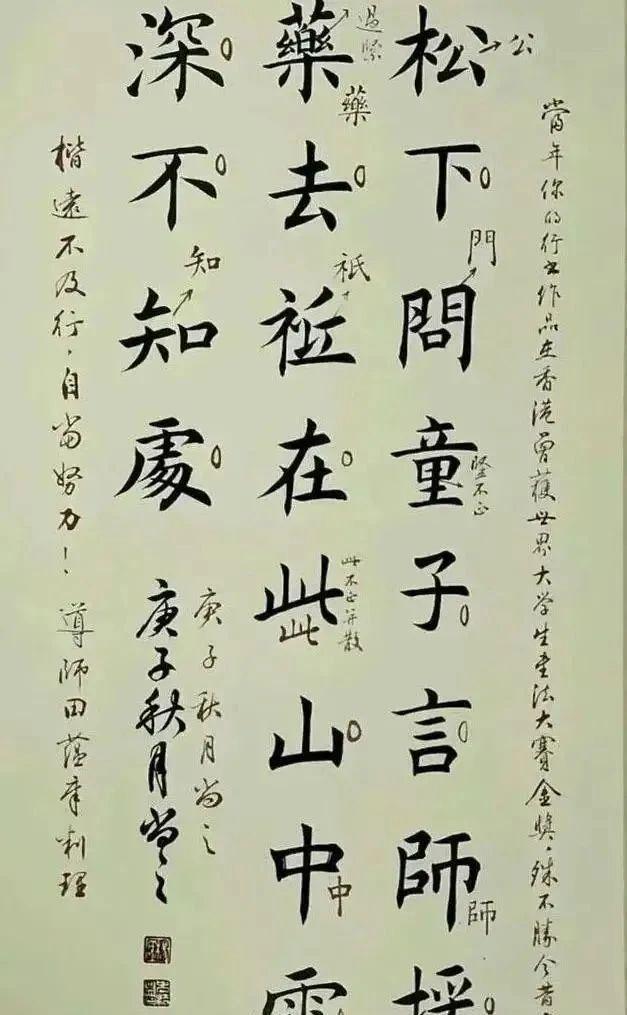 當年你的行书作品在香港曾獲世界大学生书法大賽金獎,殊不勝今昔
松下問童子言師採
公
門
竪不正
師
藥去祗在此山中雲
過緊
藥
祇
此不正并散
此
中
深不知處
知
庚子秋月尚之
庚子秋月尚之
楷遠不及行,自當努力!導師田蘊章